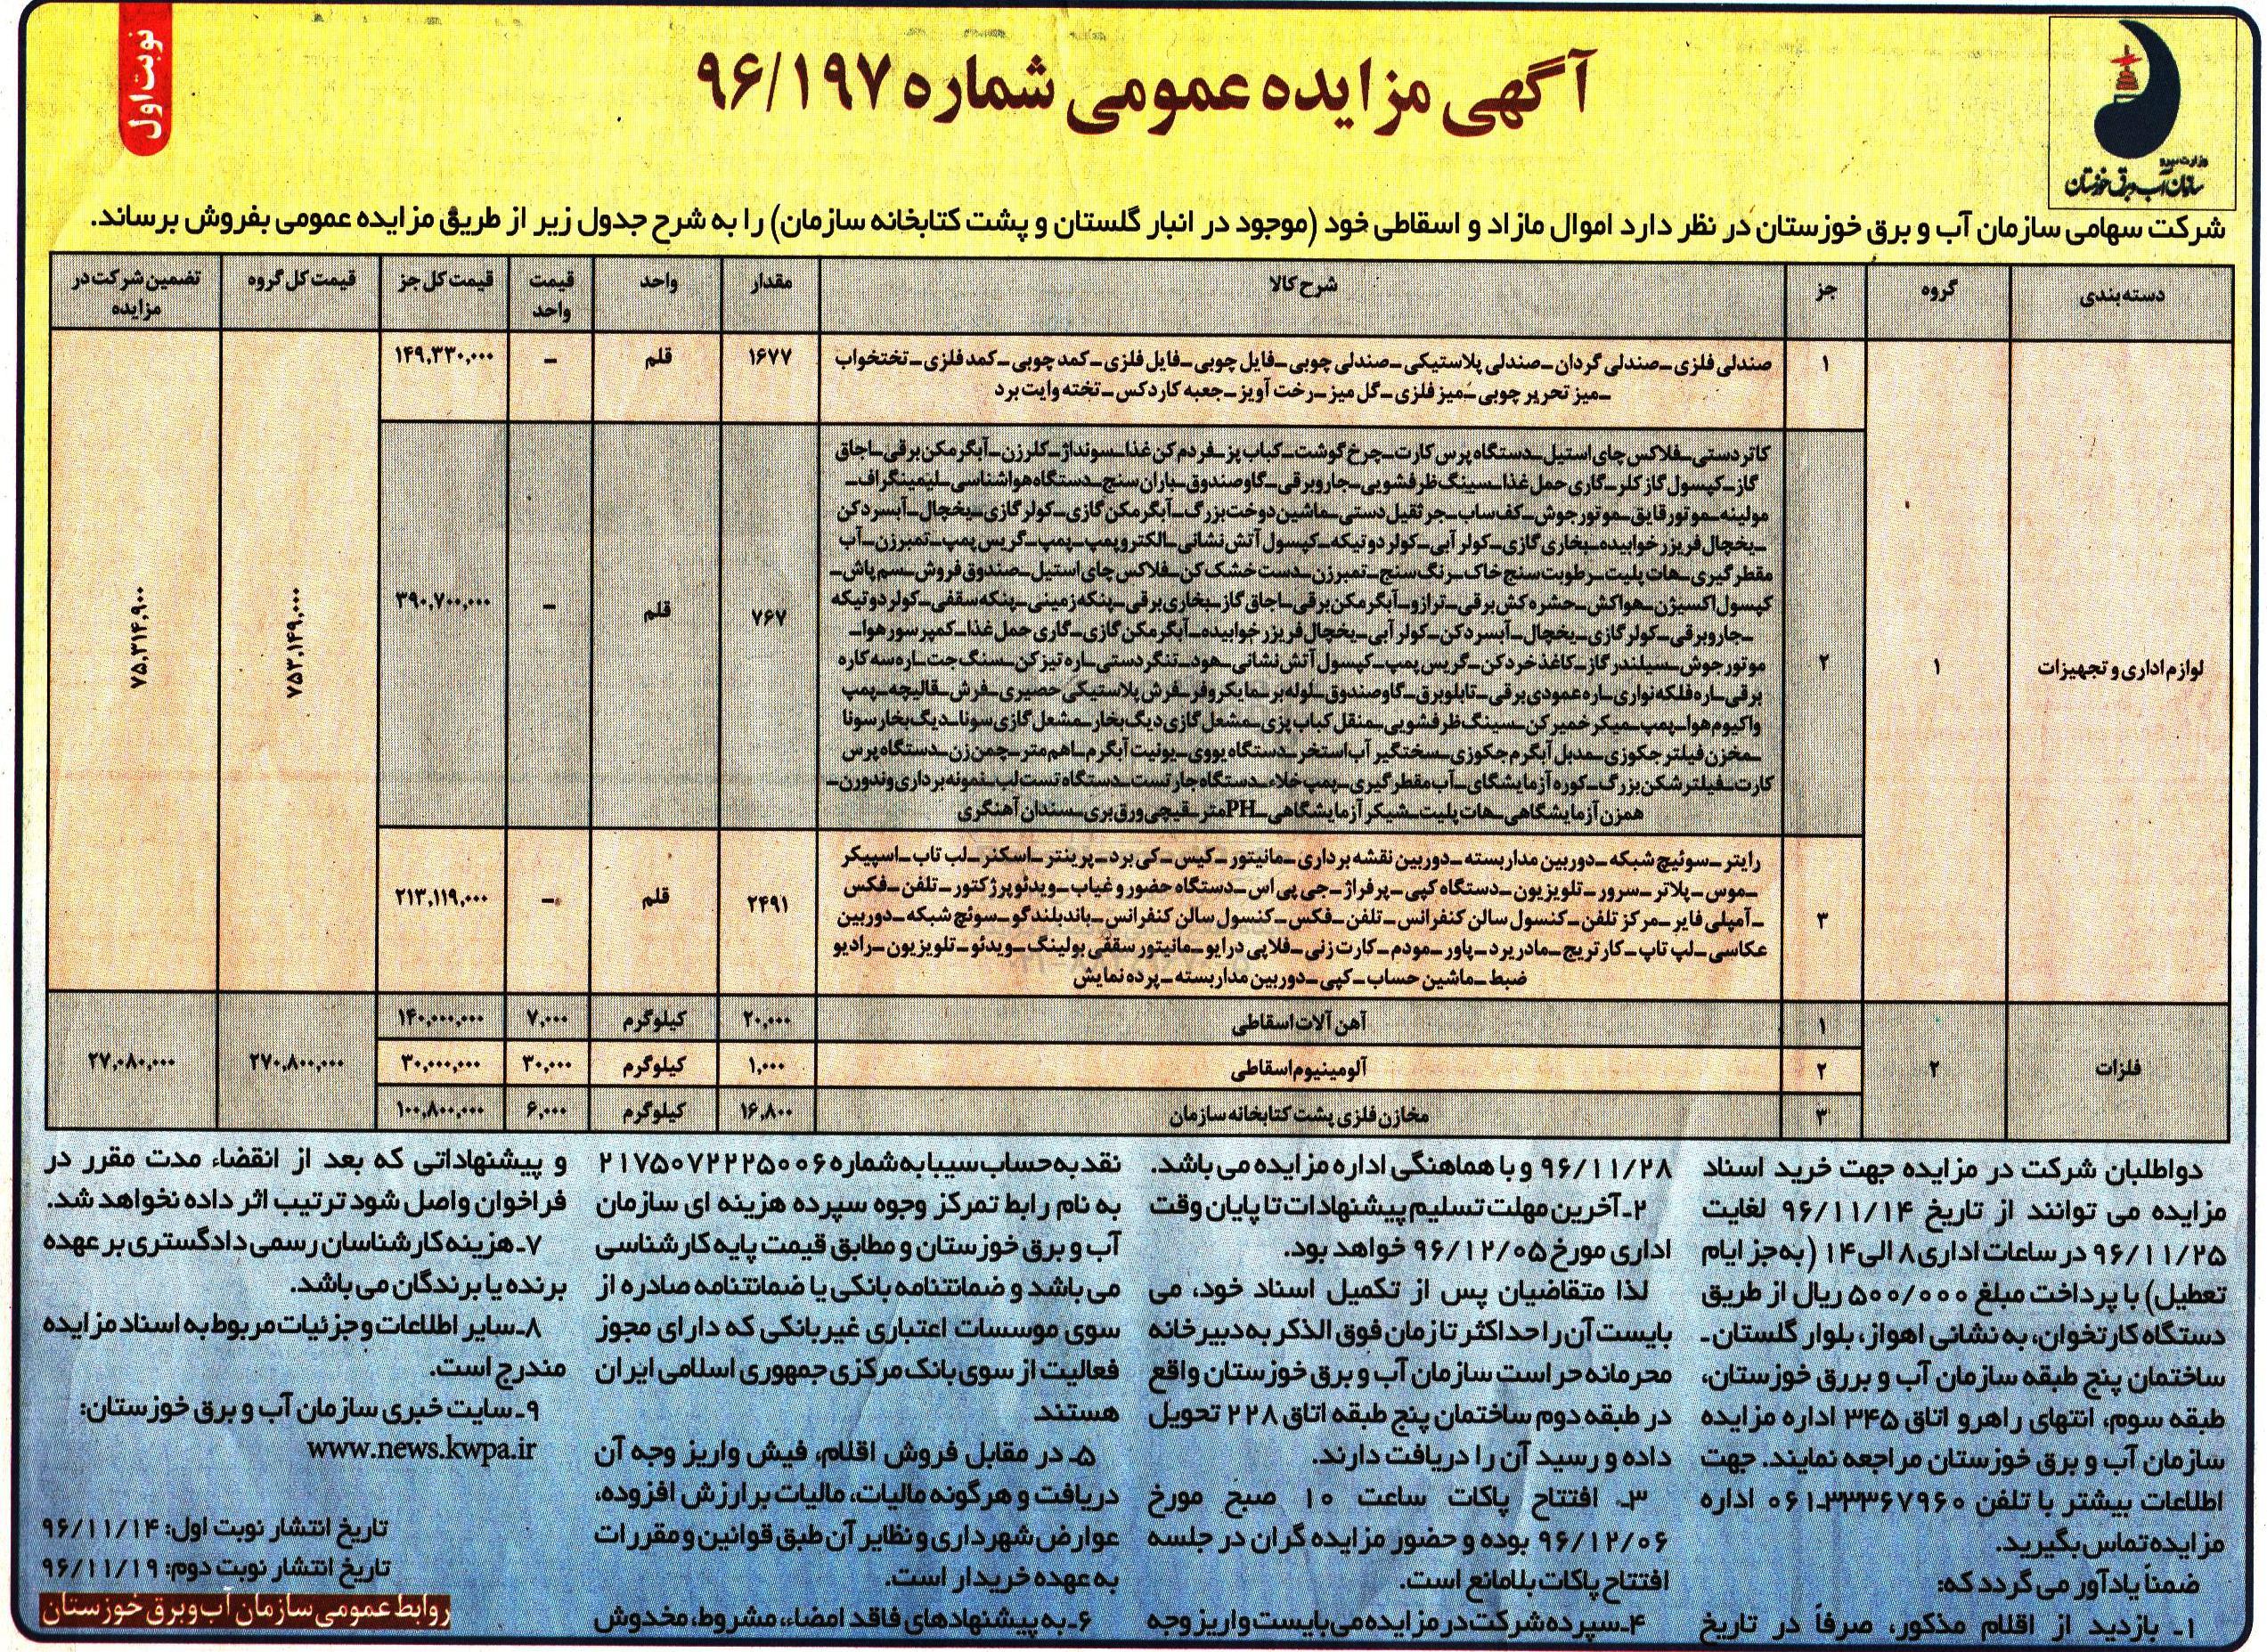 نوبت اول
آگهی مزایده عمومی شماره ۹۶/۱۹۷
وزارت نیرو
سازمان آب و برق خوزستان
شرکت سهامی سازمان آب و برق خوزستان در نظر دارد اموال مازاد و اسقاطی خود (موجود در انبار گلستان و پشت کتابخانه سازمان) را به شرح جدول زیر از طریق مزایده عمومی بفروش برساند.
دسته بندی گروه جز شرح کالا مقدار واحد قیمت واحد قیمت کل جز قیمت کل گروه تضمین شرکت در مزایده
لوازم اداری و تجهیزات ۱
۱
صندلی فلزی ـ صندلی گردان ـ صندلی پلاستیکی ـ صندلی چوبی ـ فایل چوبی ـ فایل فلزی ـ کمد چوبی ـ کمد فلزی ـ تختخواب
ـ میز تحریر چوبی ـ میز فلزی ـ گل میز ـ رخت آویز ـ جعبه کاردکس ـ تخته وایت برد
۱۶۷۷ قلم ـ ۱۴۹,۳۳۰,۰۰۰
۲
کاتر دستی ـ فلاکس چای استیل ـ دستگاه پرس کارت ـ چرخ گوشت ـ کباب پز ـ فر دم کن غذا ـ سونداژ ـ کلرزن ـ آبگرمکن برقی ـ اجاق
گاز ـ کپسول گاز کلر ـ گاری حمل غذا ـ سینگ ظرفشویی ـ جاروبرقی ـ گاوصندوق ـ باران سنج ـ دستگاه هواشناسی ـ لیمینگراف ـ
مولینه ـ موتور قایق ـ موتور جوش ـ کف ساب ـ جرثقیل دستی ـ ماشین دوخت بزرگ ـ آبگرمکن گازی ـ کولر گازی ـ یخچال ـ آبسردکن
ـ یخچال فریزر خوابیده ـ بخاری گازی ـ کولر آبی ـ کولر دو تیکه ـ کپسول آتش نشانی ـ الکتروپمپ ـ پمپ ـ گریس پمپ ـ تمبرزن ـ آب
مقطر گیری ـ هات پلیت ـ رطوبت سنج خاک ـ رنگ سنج ـ تمبرزن ـ دست خشک کن ـ فلاکس چای استیل ـ صندوق فروش ـ سم پاش ـ
کپسول اکسیژن ـ هواکش ـ حشره کش برقی ـ ترازو ـ آبگرمکن برقی ـ اجاق گاز ـ بخاری برقی ـ پنکه زمینی ـ پنکه سقفی ـ کولر دو تیکه
ـ جاروبرقی ـ کولر گازی ـ یخچال ـ آبسردکن ـ کولر آبی ـ یخچال فریزر خوابیده ـ آبگرمکن گازی ـ گاری حمل غذا ـ کمپرسور هوا ـ
موتور جوش ـ سیلندر گاز ـ کاغذ خردکن ـ گریس پمپ ـ کپسول آتش نشانی ـ هود ـ تنگر دستی ـ اره تیز کن ـ سنگ جت ـ اره سه کاره
برقی ـ اره فلکه نواری ـ اره عمودی برقی ـ تابلو برق ـ گاوصندوق ـ لوله بر ـ مایکروفر ـ فرش پلاستیکی حصیری ـ فرش ـ قالیچه ـ پمپ
واکیوم هوا ـ پمپ ـ میکر خمیرکن ـ سینگ ظرفشویی ـ منقل کباب پزی ـ مشعل گازی دیگ بخار ـ مشعل گازی سونا ـ دیگ بخار سونا
ـ مخزن فیلتر جکوزی ـ مدبل آبگرم جکوزی ـ سختگیر آب استخر ـ دستگاه یووی ـ یونیت آبگرم ـ اهم متر ـ چمن زن ـ دستگاه پرس
کارت ـ فیلتر شکن بزرگ ـ کوره آزمایشگای ـ آب مقطر گیری ـ پمپ خلاء ـ دستگاه جارتست ـ دستگاه تست لب ـ نمونه برداری وندورن ـ
همزن آزمایشگاهی ـ هات پلیت ـ شیکر آزمایشگاهی ـ PH متر ـ قیچی ورق بری ـ سندان آهنگری
۷۶۷ قلم ـ ۳۹۰,۷۰۰,۰۰۰
۳
رایتر ـ سوئیچ شبکه ـ دوربین مداربسته ـ دوربین نقشه برداری ـ مانیتور ـ کیس ـ کی برد ـ پرینتر ـ اسکنر ـ لب تاب ـ اسپیکر
ـ موس ـ پلاتر ـ سرور ـ تلویزیون ـ دستگاه کپی ـ پرفراژ ـ جی پی اس ـ دستگاه حضور و غیاب ـ ویدئو پرژکتور ـ تلفن ـ فکس
ـ آمپلی فایر ـ مرکز تلفن ـ کنسول سالن کنفرانس ـ تلفن ـ فکس ـ کنسول سالن کنفرانس ـ باند بلندگو ـ سوئچ شبکه ـ دوربین
عکاسی ـ لپ تاپ ـ کارتریج ـ مادربرد ـ پاور ـ مودم ـ کارت زنی ـ فلاپی درایو ـ مانیتور سقفی بولینگ ـ ویدئو ـ تلویزیون ـ رادیو
ضبط ـ ماشین حساب ـ کپی ـ دوربین مداربسته ـ پرده نمایش
۲۴۹۱ قلم ـ ۲۱۳,۱۱۹,۰۰۰
۷۵۳,۱۴۹,۰۰۰ ۷۵,۳۱۴,۹۰۰
فلزات ۲
۱ آهن آلات اسقاطی ۲۰,۰۰۰ کیلوگرم ۷,۰۰۰ ۱۴۰,۰۰۰,۰۰۰
۲ آلومینیوم اسقاطی ۱,۰۰۰ کیلوگرم ۳۰,۰۰۰ ۳۰,۰۰۰,۰۰۰
۳ مخازن فلزی پشت کتابخانه سازمان ۱۶,۸۰۰ کیلوگرم ۶,۰۰۰ ۱۰۰,۸۰۰,۰۰۰
۲۷۰,۸۰۰,۰۰۰ ۲۷,۰۸۰,۰۰۰
دواطلبان شرکت در مزایده جهت خرید اسناد
مزایده می توانند از تاریخ ۹۶/۱۱/۱۴ لغایت
۹۶/۱۱/۲۵ در ساعات اداری ۸ الی ۱۴ (به جز ایام
تعطیل) با پرداخت مبلغ ۵۰۰/۰۰۰ ریال از طریق
دستگاه کارتخوان، به نشانی اهواز، بلوار گلستان ـ
ساختمان پنج طبقه سازمان آب و بررق خوزستان،
طبقه سوم، انتهای راهرو اتاق ۳۴۵ اداره مزایده
سازمان آب و برق خوزستان مراجعه نمایند. جهت
اطلاعات بیشتر با تلفن ۳۳۳۶۷۹۶۰-۰۶۱ اداره
مزایده تماس بگیرید.
ضمناً یادآور می گردد که:
۱ـ بازدید از اقلام مذکور، صرفاً در تاریخ
۹۶/۱۱/۲۸ و با هماهنگی اداره مزایده می باشد.
۲ـ آخرین مهلت تسلیم پیشنهادات تا پایان وقت
اداری مورخ ۹۶/۱۲/۰۵ خواهد بود.
لذا متقاضیان پس از تکمیل اسناد خود، می
بایست آن را حداکثر تا زمان فوق الذکر به دبیرخانه
محرمانه حراست سازمان آب و برق خوزستان واقع
در طبقه دوم ساختمان پنج طبقه اتاق ۲۲۸ تحویل
داده و رسید آن را دریافت دارند.
۳ـ افتتاح پاکات ساعت ۱۰ صبح مورخ
۹۶/۱۲/۰۶ بوده و حضور مزایده گران در جلسه
افتتاح پاکات بلامانع است.
۴ـ سپرده شرکت در مزایده می بایست واریز وجه
نقد به حساب سیبا به شماره ۲۱۷۵۰۷۲۲۲۵۰۰۶
به نام رابط تمرکز وجوه سپرده هزینه ای سازمان
آب و برق خوزستان و مطابق قیمت پایه کارشناسی
می باشد و ضمانتنامه بانکی یا ضمانتنامه صادره از
سوی موسسات اعتباری غیربانکی که دارای مجوز
فعالیت از سوی بانک مرکزی جمهوری اسلامی ایران
هستند
۵ـ در مقابل فروش اقلام، فیش واریز وجه آن
دریافت و هرگونه مالیات، مالیات بر ارزش افزوده،
عوارض شهرداری و نظایر آن طبق قوانین و مقررات
به عهده خریدار است.
۶ـ به پیشنهادهای فاقد امضاء، مشروط، مخدوش
و پیشنهاداتی که بعد از انقضاء مدت مقرر در
فراخوان واصل شود ترتیب اثر داده نخواهد شد.
۷ـ هزینه کارشناسان رسمی دادگستری بر عهده
برنده یا برندگان می باشد.
۸ـ سایر اطلاعات و جزئیات مربوط به اسناد مزایده
مندرج است.
۹ـ سایت خبری سازمان آب و برق خوزستان:
www.news.kwpa.ir
تاریخ انتشار نوبت اول: ۹۶/۱۱/۱۴
تاریخ انتشار نوبت دوم: ۹۶/۱۱/۱۹
روابط عمومی سازمان آب و برق خوزستان